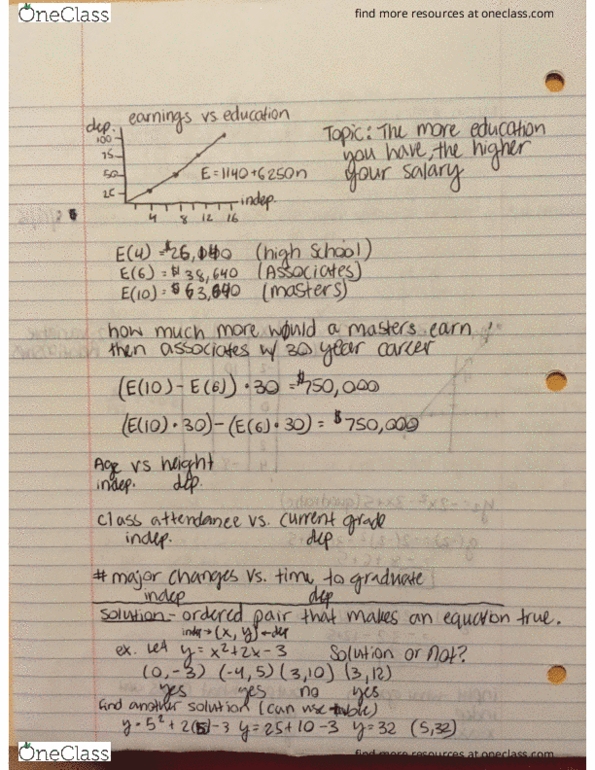 OneClass
find more resources at oneclass.com
earnings vs education
dep.
100
75
50
25
E=1140+6250n
indep.
4 8 12 16
Topic: The more education
you have, the higher
your salary
E(4) = $26,140 (high School)
E(6) = $38,640 (Associates)
E(10) = $63,640 (masters)
how much more would a masters earn
then associates w/ 30 year career
(E(10) - E(6)) • 30 = $750,000
(E(10) • 30) - (E(6) • 30) = $750,000
Age vs height
indep. dep.
class attendance vs. current grade
indep. dep.
# major changes vs. time to graduate
indep dep
Solution - ordered pair that makes an equation true.
indep → (x, y) ← dep
ex. Let y = x² + 2x - 3 Solution or Not?
(0, -3) (-4, 5) (3, 10) (3, 12)
yes yes no yes
find another solution (can use table)
y = 5² + 2(5) - 3 y = 25 + 10 - 3 y = 32 (5, 32)
OneClass
find more resources at oneclass.com